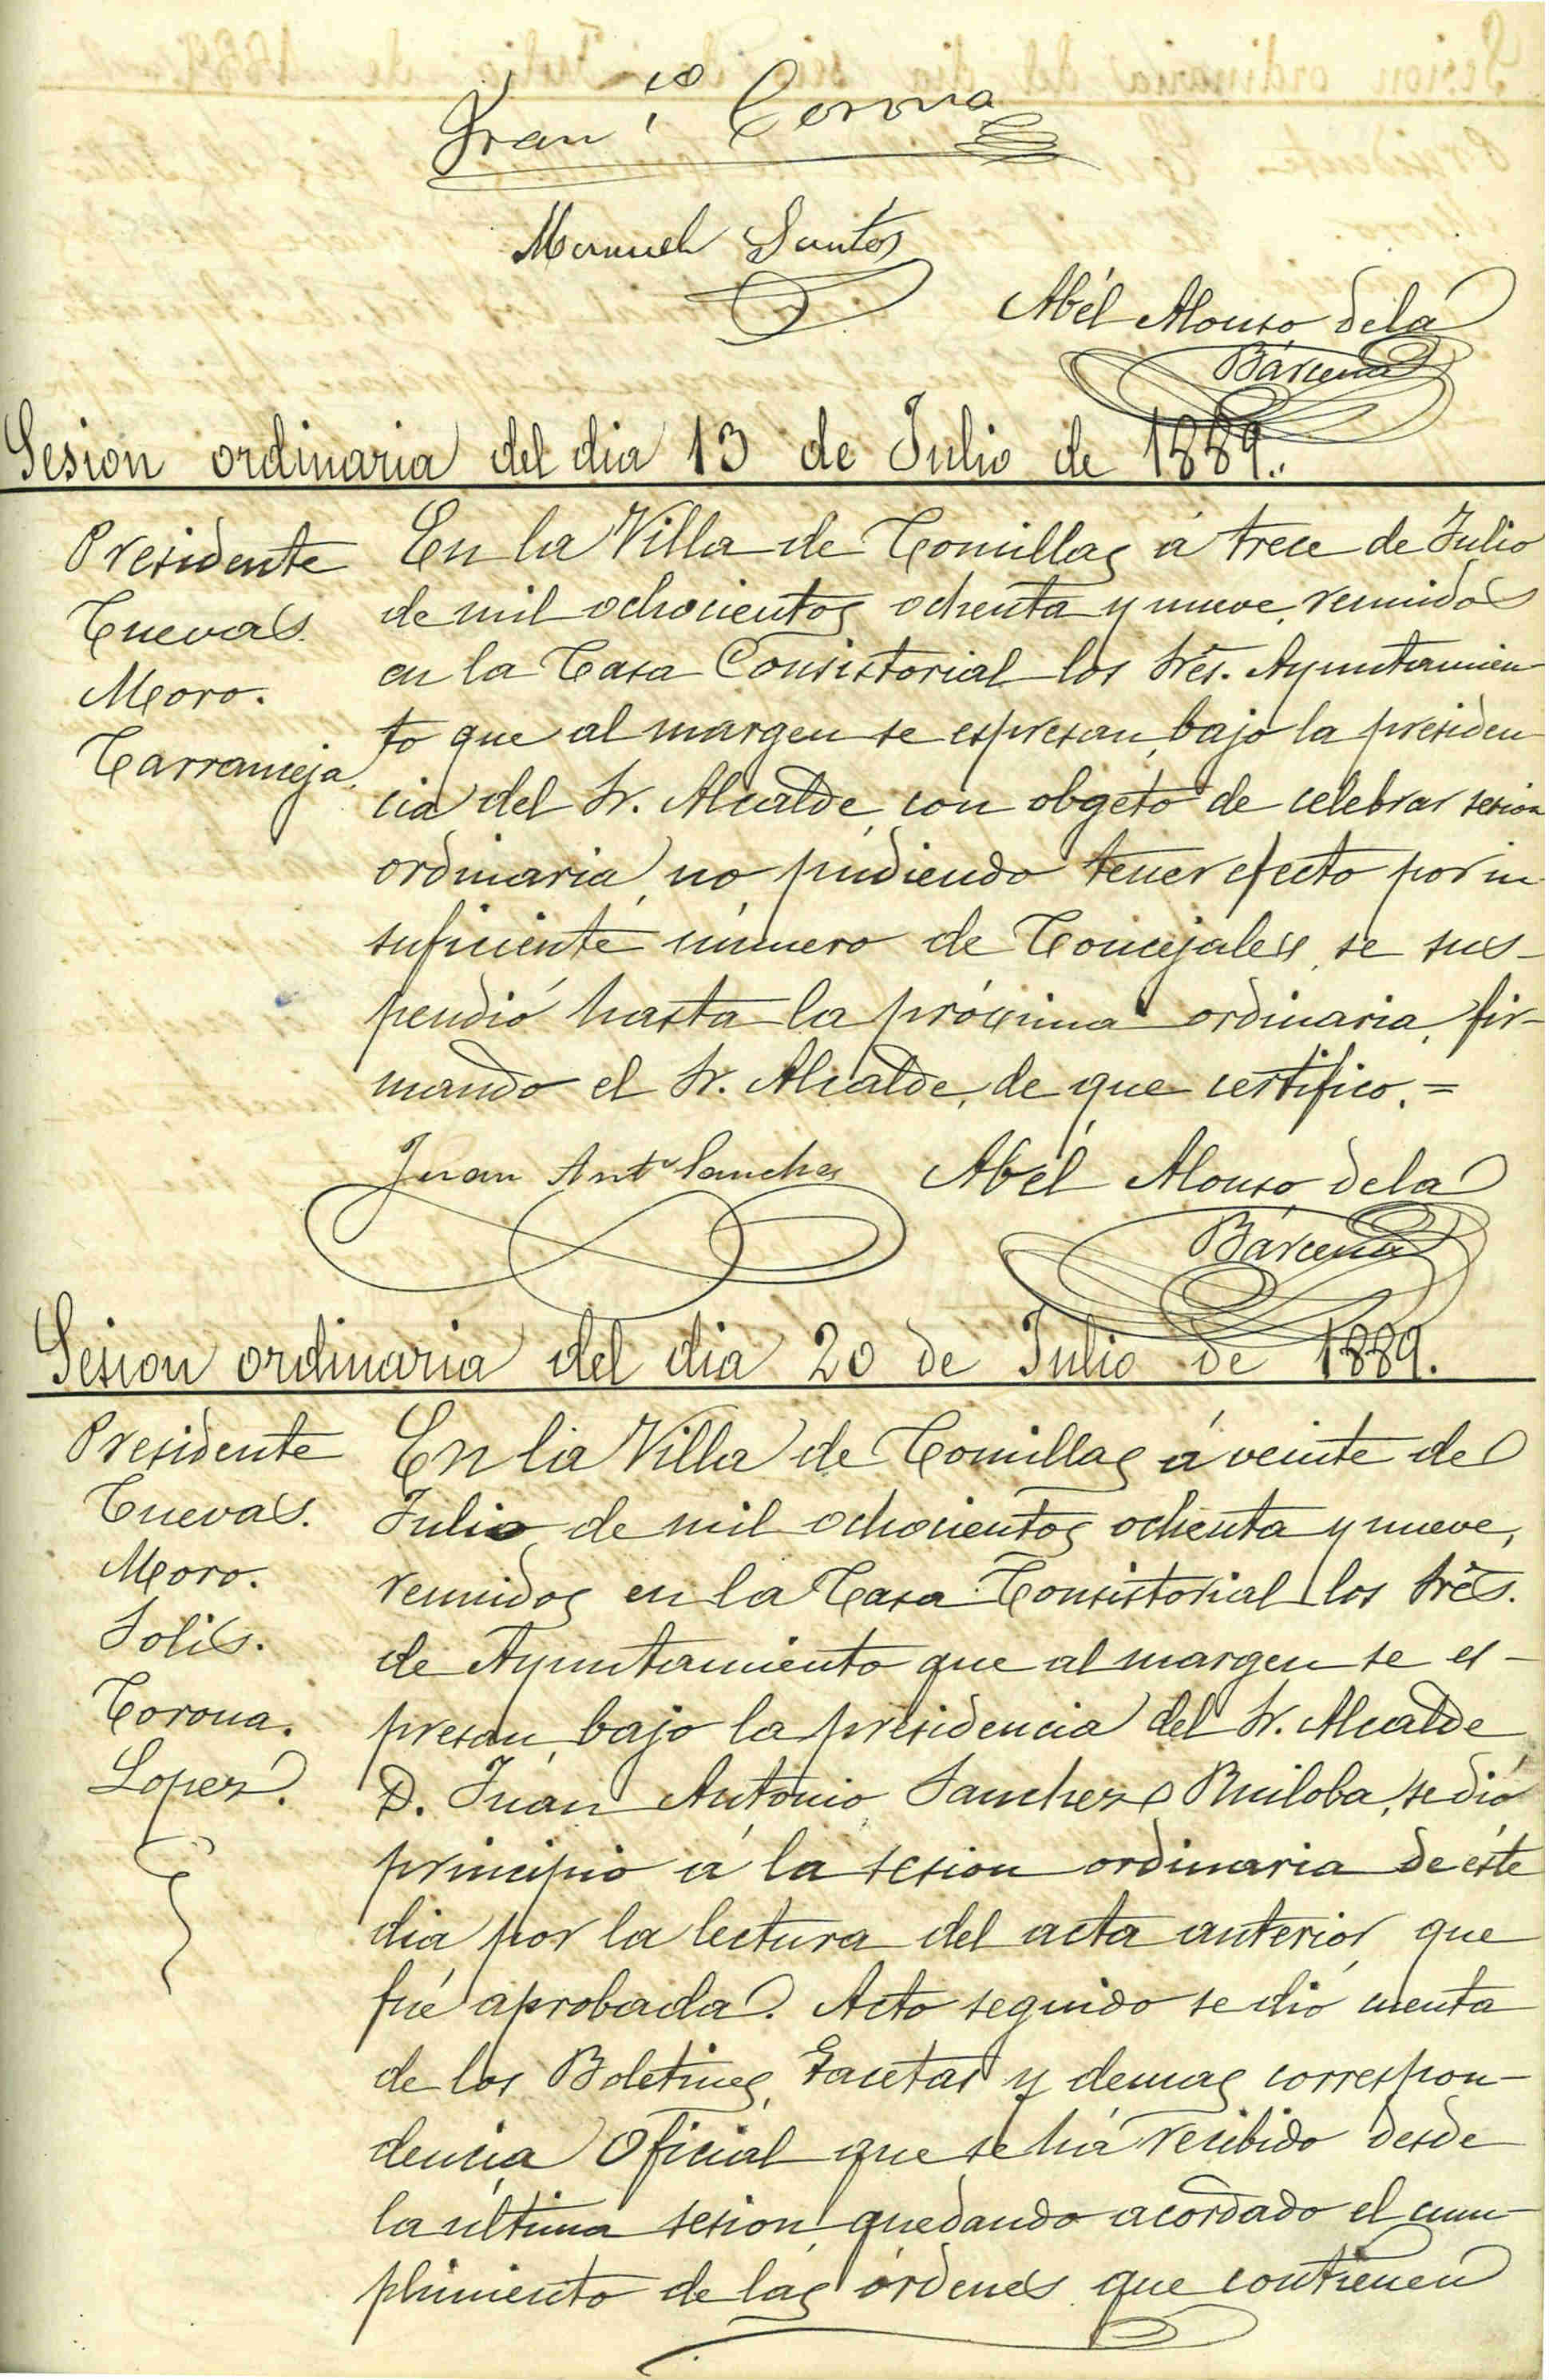 Fran.co Corona
Manuel Santos
Abél Alonso dela
Bárcena
Sesion ordinaria del dia 13 de Julio de 1889.
Presidente
Cuevas.
Moro.
Carranceja.
En la Villa de Comillas á trece de Julio
de mil ochocientos ochenta y nueve, reunidos
en la Casa Consistorial los Sres. Ayuntamien
to que al margen se espresan, bajo la presiden
cia del Sr. Alcalde, con obgeto de celebrar sesion
ordinaria, no pudiendo tener efecto por in
suficiente número de Concejales, se sus-
pendió hasta la próxima ordinaria, fir-
mando el Sr. Alcalde, de que certifico. =
Juan Anto Sanchez
Abél Alonso dela
Bárcena
Sesion ordinaria del dia 20 de Julio de 1889.
Presidente
Cuevas.
Moro.
Solis.
Corona.
Lopez.
En la Villa de Comillas á veinte de
Julio de mil ochocientos ochenta y nueve,
reunidos en la Casa Consistorial los Sres.
de Ayuntamiento que al margen se es-
presan, bajo la presidencia del Sr. Alcalde
D. Juan Antonio Sanchez Ruiloba, se dió
principio á la sesion ordinaria de éste
dia por la lectura del acta anterior, que
fué aprobada. Acto seguido se dió cuenta
de los Boletines, Gacetas y demas correspon-
dencia Oficial que se há recibido desde
la última sesion, quedando acordado el cum-
plimiento de las órdenes que contienen